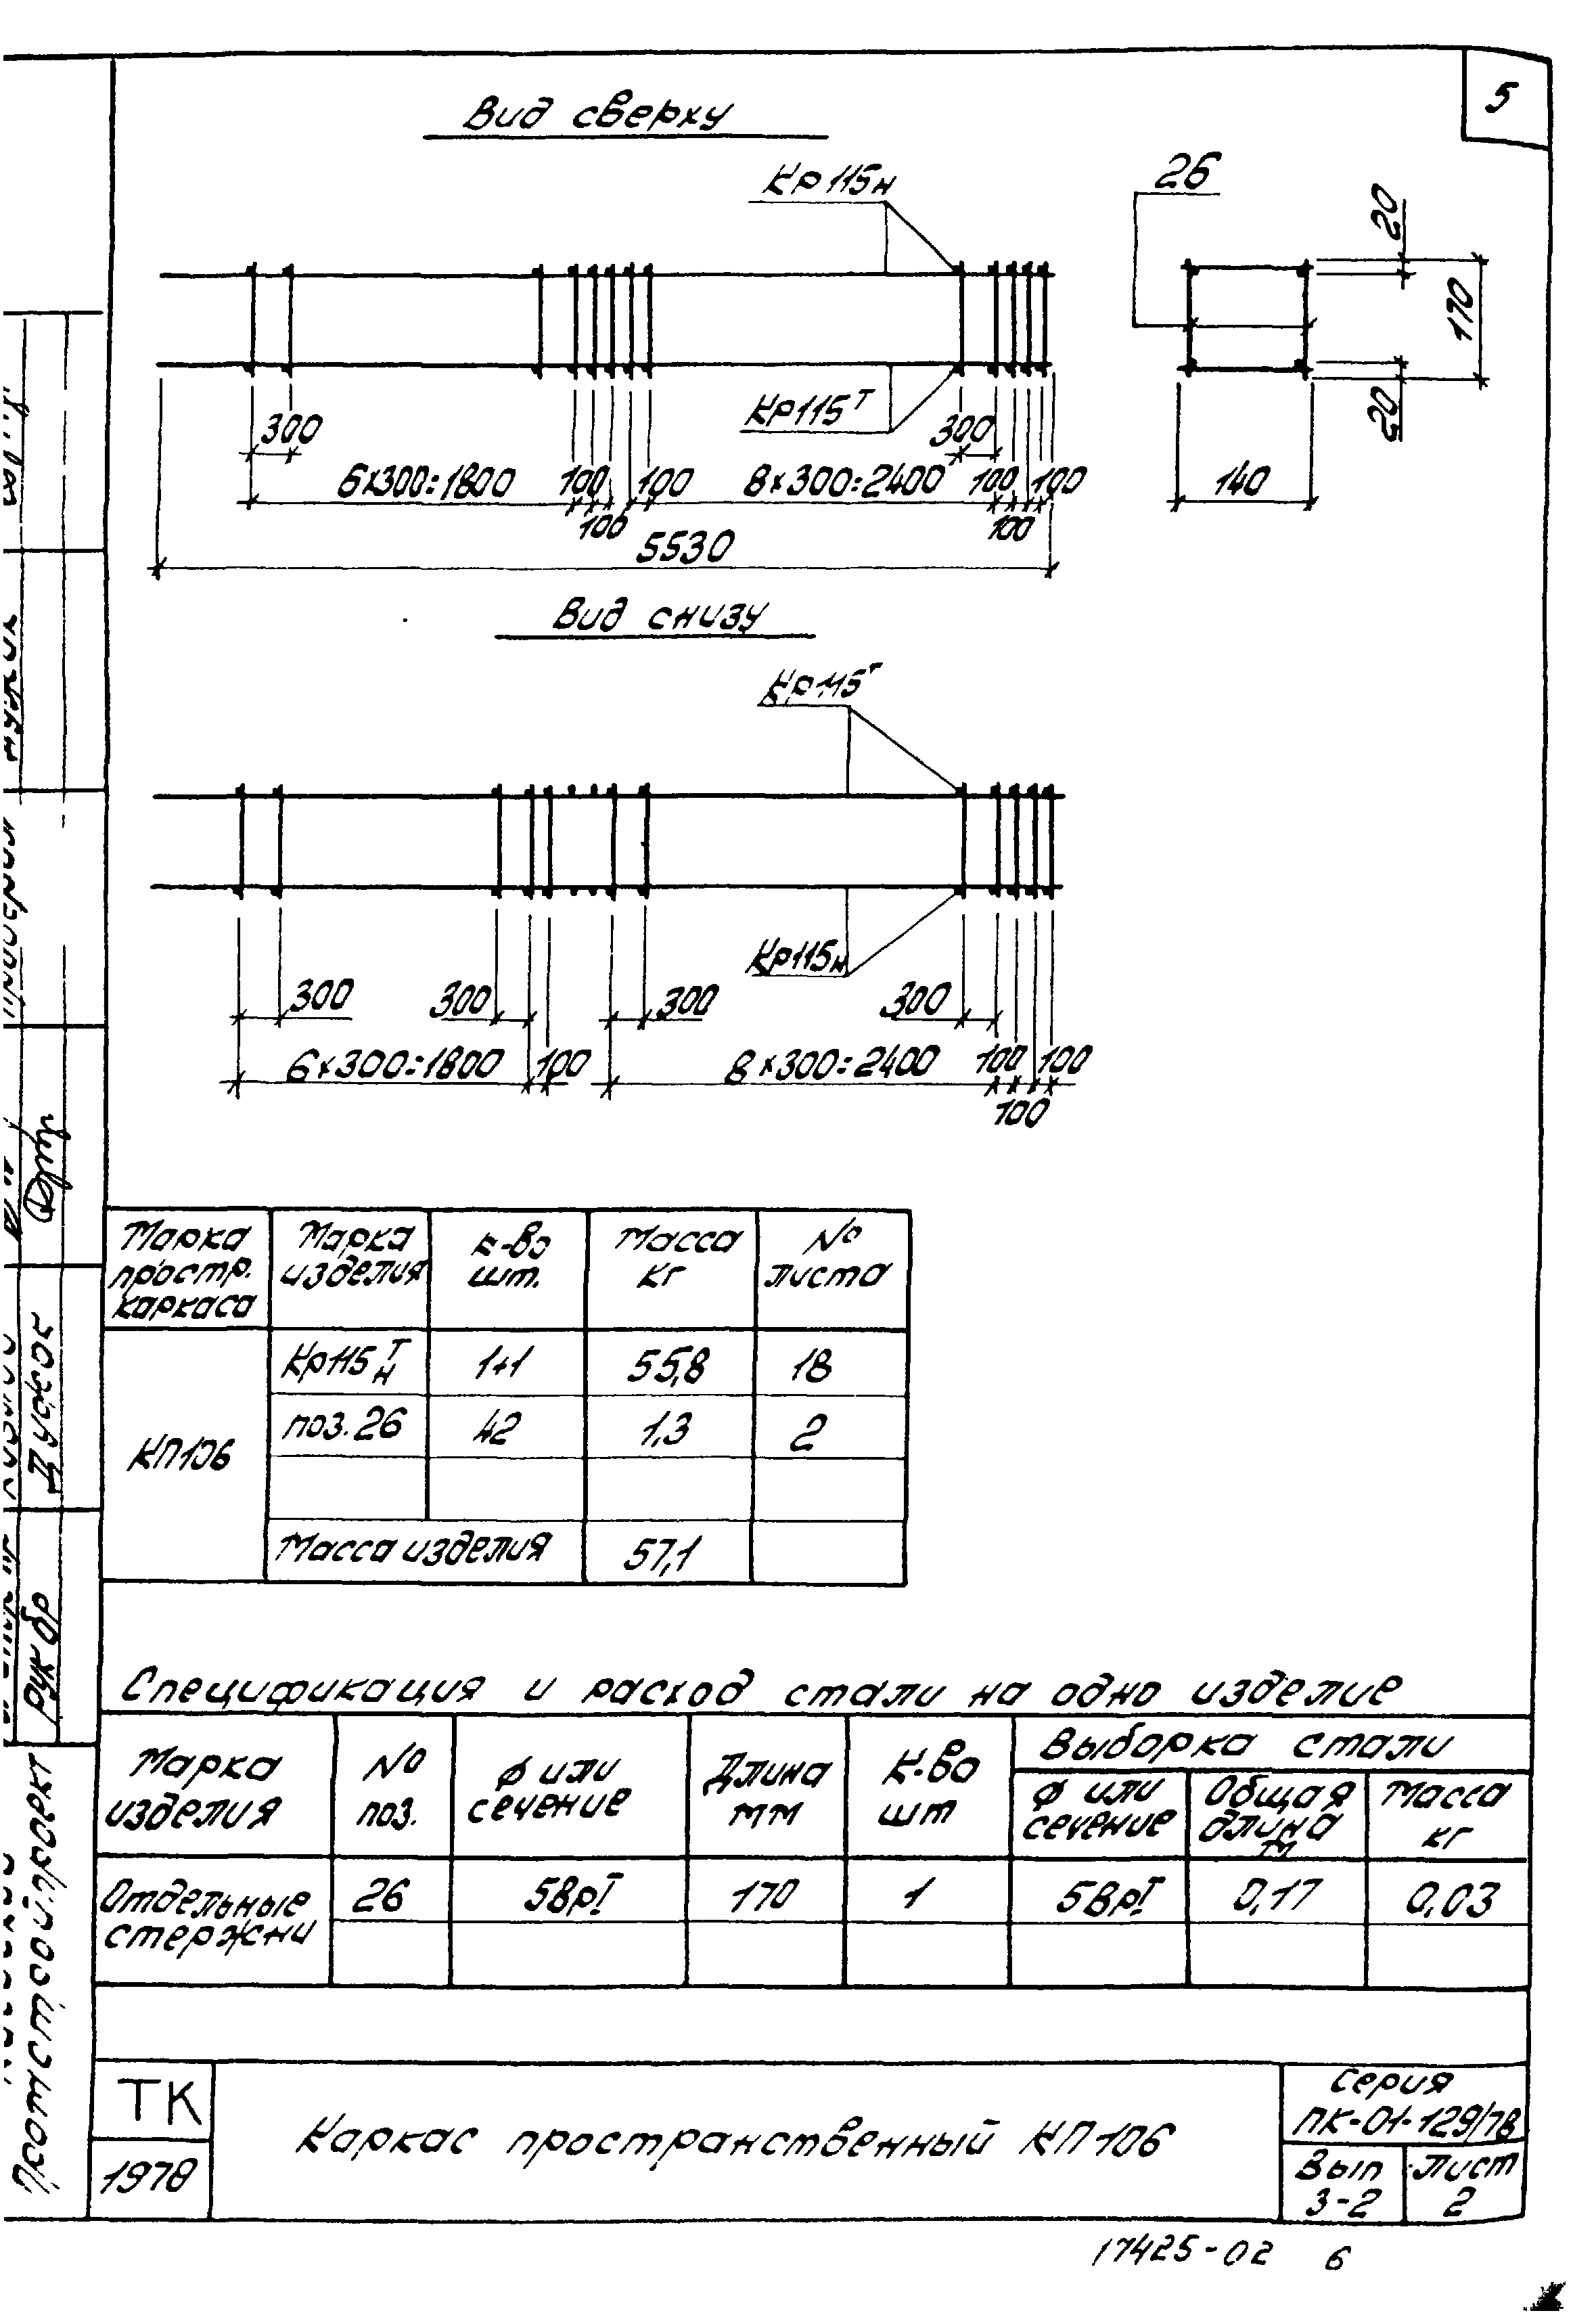 5
Вид сверху
Кр115н
26
20
170
20
140
Кр115т
300
300
6×300=1800
100
100
8×300=2400
100
100
100
100
5530
Вид снизу
Кр115т
Кр115н
300
300
300
300
6×300=1800
100
8×300=2400
100
100
100
Марка простр. каркаса
Марка изделия
к-во шт.
Масса кг
№ листа
КП106
Кр115 т н
1+1
55,8
18
поз. 26
42
1,3
2
Масса изделия
57,1
Спецификация и расход стали на одно изделие
Марка изделия
№ поз.
ф или сечение
Длина мм
К-во шт
Выборка стали
ф или сечение
Общая длина м
Масса кг
Отдельные стержни
26
5ВрI
170
1
5ВрI
0,17
0,03
ТК
1978
Каркас пространственный КП106
Серия
ПК-01-129/78
Вып
3-2
Лист
2
17425-02 6
Рук бр